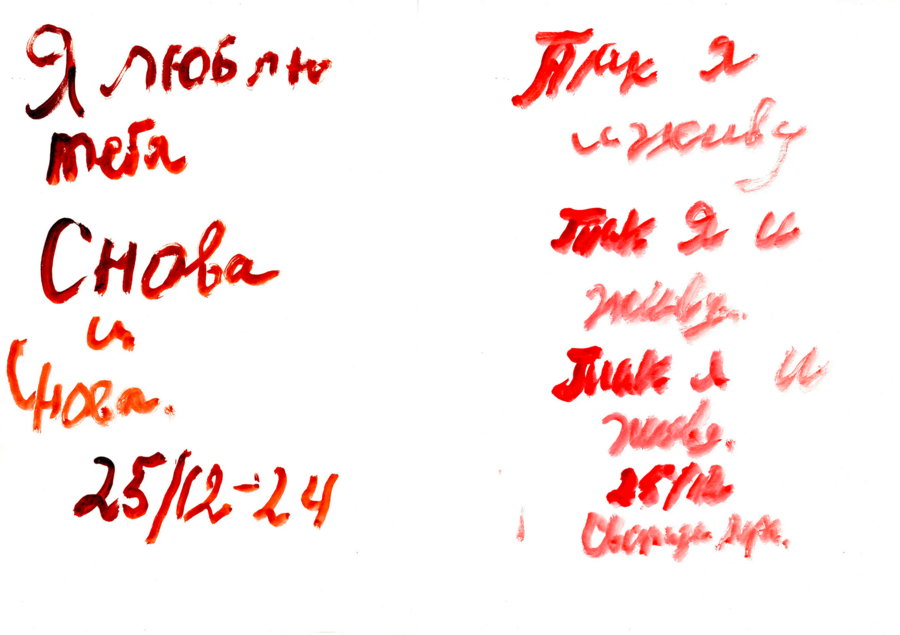 Я люблю
тебя
Снова
и
Снова.
25/12-24
Так я
и живу
Так я и
живу.
Так я и
живу.
25/12